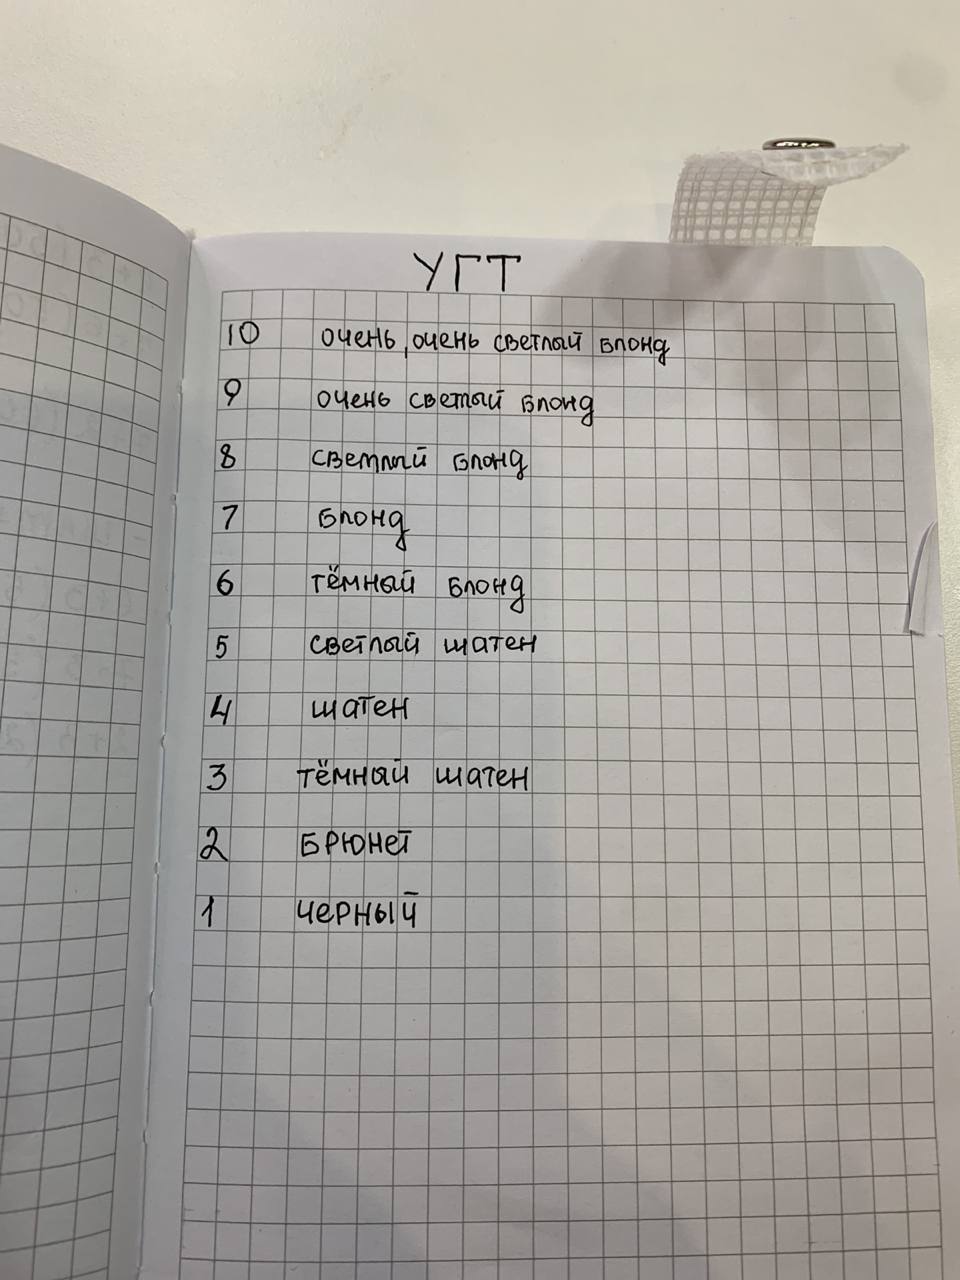 УГТ
10 очень, очень светлый блонд
9 очень светлый блонд
8 светлый блонд
7 блонд
6 тёмный блонд
5 светлый шатен
4 шатен
3 тёмный шатен
2 брюнет
1 черный